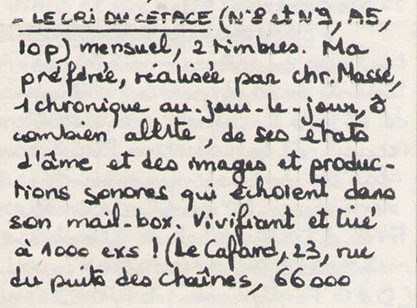 - LE CRI DU CÉTACE (N°8 et N°9, A5,
10p) mensuel, 2 timbres. Ma
préférée, réalisée par chr. Massé,
1 chronique au-jour-le-jour, ô
combien allité, de ses états
d'âme et des images et produc-
tions sonores qui échoient dans
son mail-box. Vivifiant et tiré
à 1000 exs ! (Le Cafard, 23, rue
du puits des chaînes, 66000